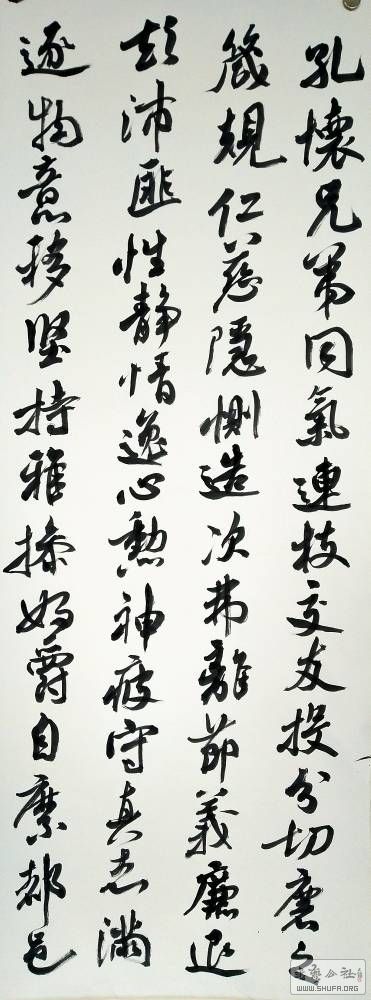 孔懷兄弟同氣連枝交友投分切磨之
箴規仁慈隱惻造次弗離節義廉退
顛沛匪性静情逸心動神疲守真志滿
逐物意移堅持雅操好爵自縻都邑
書藝公社
WWW.SHUFA.ORG